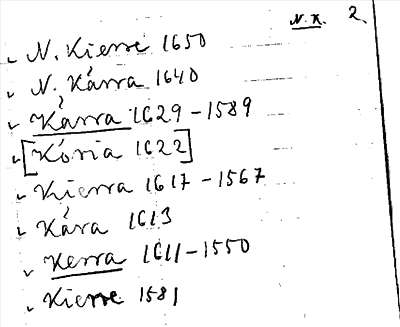 N. K. 2.
N. Kierre 1650
N. Kárra 1640
Kárra 1629-1589
[Kória 1622]
Kierra 1617-1567
Kára 1613
Kerra 1611-1550
Kierre 1581